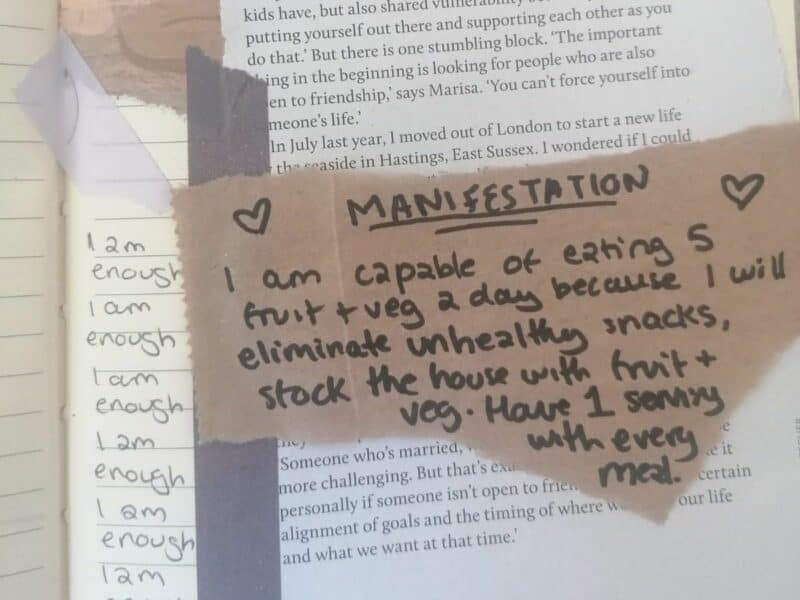 kids have, but also shared vulnerability
putting yourself out there and supporting each other as you
do that.' But there is one stumbling block. 'The important
ing in the beginning is looking for people who are also
en to friendship,' says Marisa. 'You can't force yourself into
meone's life.'
In July last year, I moved out of London to start a new life
the seaside in Hastings, East Sussex. I wondered if I could
MANIFESTATION
I am capable of eating 5
fruit + veg a day because I will
eliminate unhealthy snacks,
stock the house with fruit +
veg. Have 1 serving
with every
meal.
I am
enough
I am
enough
I am
enough
I am
enough
I am
enough
I am
they
Someone who's married,
more challenging. But that's exa
personally if someone isn't open to frien certain
alignment of goals and the timing of where w our life
and what we want at that time.'